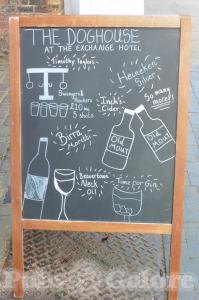 THE DOGHOUSE
AT THE EXCHANGE HOTEL
Timothy Taylors
T
Heineken
Silver!
Swingers &
£10
5 shots
Inch's
Cider
So many
more!
OLD
MOUT
OLD
MOUT
Birra
Moretti
Beavertown
Neck
Oil
Time for Gin